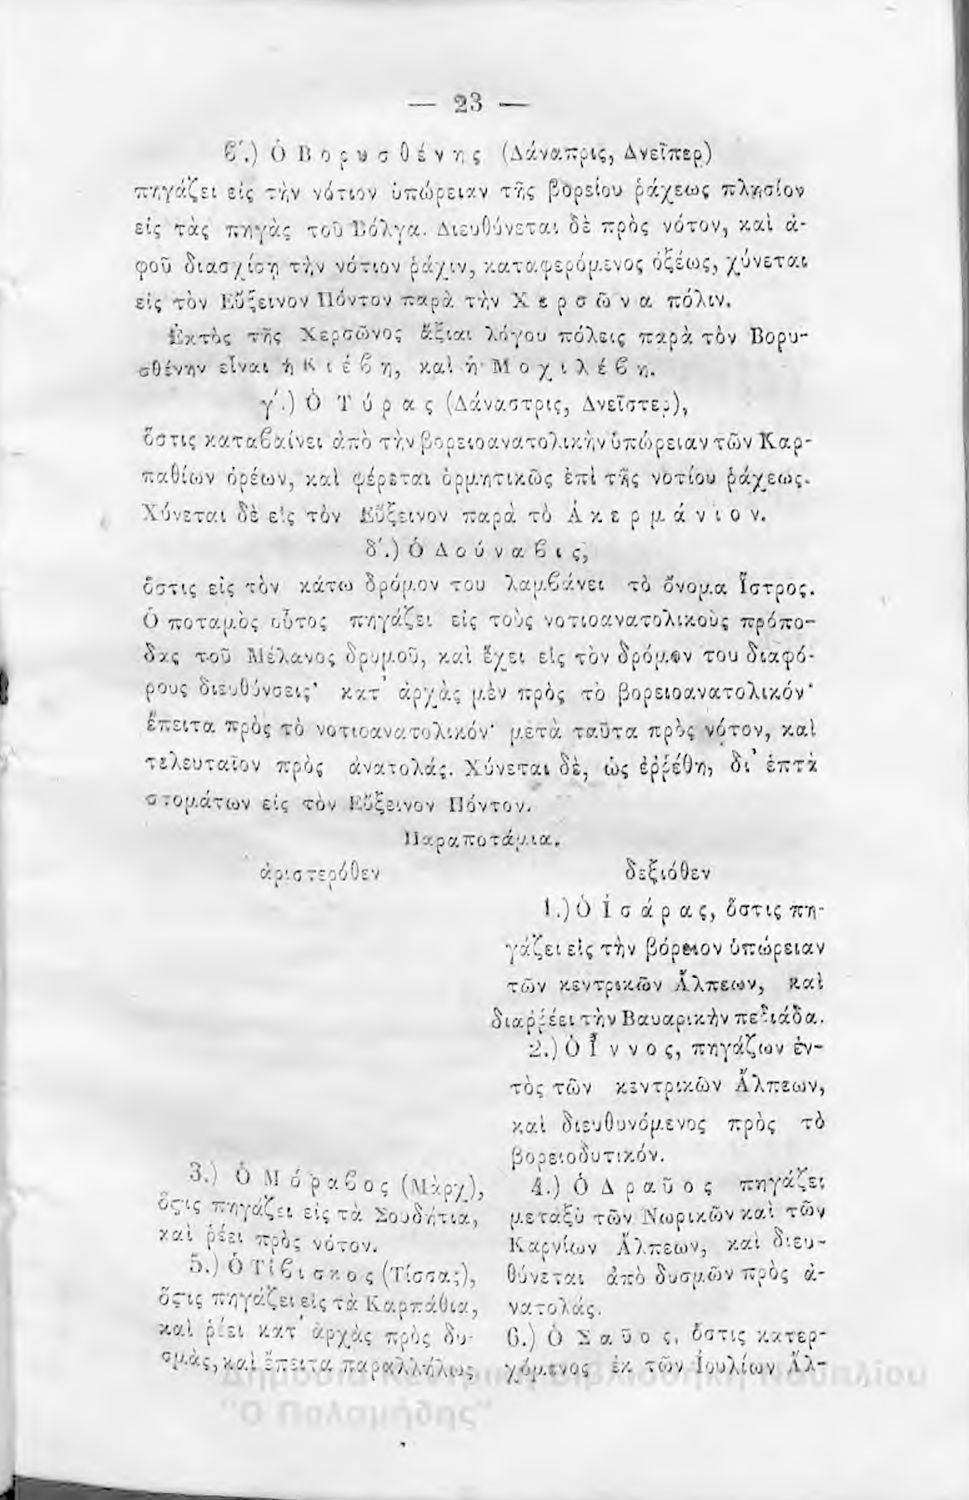 — 23 —
ϐ΄.) Ὁ Βορυσθένης (Δάναπρις, Δνεῖπερ)
πηγάζει εἰς τὴν νότιον ὑπώρειαν τῆς βορείου ῥάχεως πλησίον
εἰς τὰς πηγὰς τοῦ Βόλγα. Διευθύνεται δὲ πρὸς νότον, καὶ ἀ-
φοῦ διασχίσῃ τὴν νότιον ῥάχιν, καταφερόμενος ὀξέως, χύνεται
εἰς τὸν Εὔξεινον Πόντον παρὰ τὴν Χερσῶνα πόλιν.
Ἐκτὸς τῆς Χερσῶνος ἄξιαι λόγου πόλεις παρὰ τὸν Βορυ-
σθένην εἶναι ἡ Κιέϐη, καὶ ἡ Μοχιλέϐη.
γ΄.) Ὁ Τύρας (Δάναστρις, Δνεῖστερ),
ὅστις καταϐαίνει ἀπὸ τὴν βορειοανατολικὴν ὑπώρειαν τῶν Καρ-
παθίων ὀρέων, καὶ φέρεται ὁρμητικῶς ἐπὶ τῆς νοτίου ῥάχεως.
Χύνεται δὲ εἰς τὸν Εὔξεινον παρὰ τὸ Ἀκερμάνιον.
δ΄.) Ὁ Δούναϐις,
ὅστις εἰς τὸν κάτω δρόμον του λαμϐάνει τὸ ὄνομα Ἴστρος.
Ὁ ποταμὸς οὗτος πηγάζει εἰς τοὺς νοτιοανατολικοὺς πρόπο-
δας τοῦ Μέλανος δρυμοῦ, καὶ ἔχει εἰς τὸν δρόμον του διαφό-
ρους διευθύνσεις· κατ᾿ ἀρχὰς μὲν πρὸς τὸ βορειοανατολικόν·
ἔπειτα πρὸς τὸ νοτιοανατολικόν· μετὰ ταῦτα πρὸς νότον, καὶ
τελευταῖον πρὸς ἀνατολάς. Χύνεται δὲ, ὡς ἐῤῥέθη, δι᾿ ἑπτὰ
στομάτων εἰς τὸν Εὔξεινον Πόντον.
Παραποτάμια.
ἀριστερόθεν
3.) Ὁ Μόραϐος (Μὰρχ),
ὅϛις πηγάζει εἰς τὰ Σουδήτια,
καὶ ῥέει πρὸς νότον.
5.) Ὁ Τίϐισκος (Τίσσας),
ὅϛις πηγάζει εἰς τὰ Καρπάθια,
καὶ ῥέει κατ᾿ ἀρχὰς πρὸς δυ-
σμὰς, καὶ ἔπειτα παραλλήλως
δεξιόθεν
1.) Ὁ Ἰσάρας, ὅστις πη-
γάζει εἰς τὴν βόρειον ὑπώρειαν
τῶν κεντρικῶν Ἄλπεων, καὶ
διαῤῥέει τὴν Βαυαρικὴν πεδιάδα.
2.) Ὁ Ἴννος, πηγάζων ἐν-
τὸς τῶν κεντρικῶν Ἄλπεων,
καὶ διευθυνόμενος πρὸς τὸ
βορειοδυτικόν.
4.) Ὁ Δραῦος πηγάζει
μεταξὺ τῶν Νωρικῶν καὶ τῶν
Καρνίων Ἄλπεων, καὶ διευ-
θύνεται ἀπὸ δυσμῶν πρὸς ἀ-
νατολάς.
6.) Ὁ Σαῦος, ὅστις κατερ-
χόμενος ἐκ τῶν Ἰουλίων Ἄλ-
Δημόσια Κεντρική Βιβλιοθήκη Ναυπλίου
"Ο Παλαμήδης"